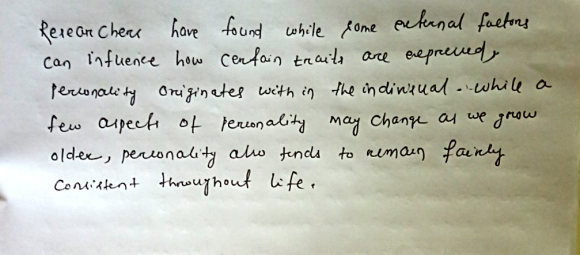 Researchers have found while some external factors
can influence how certain traits are expressed,
personality originates with in the individual. while a
few aspects of personality may change as we grow
older, personality also tends to remain fairly
consistent throughout life.